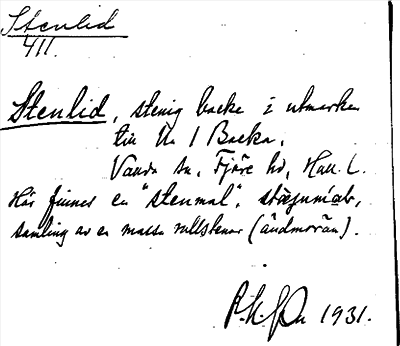 Stenlid
411.
Stenlid, stenig backe i utmarken
till No 1 Backa,
Vanda sn, Fjäre hd, Hall. l.
Här finnes en "stenmal",
samling av en massa rullstenar (ändmorän).
1931.